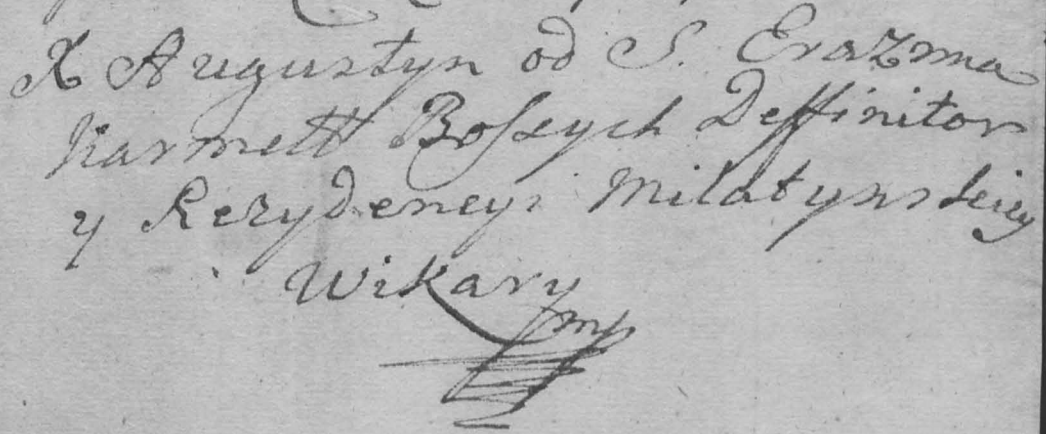 X Augustyn od S. Erazma
Karmelit Bosych Deffinitor
y Rezydencyi Milatynskiey
Wikary
mp